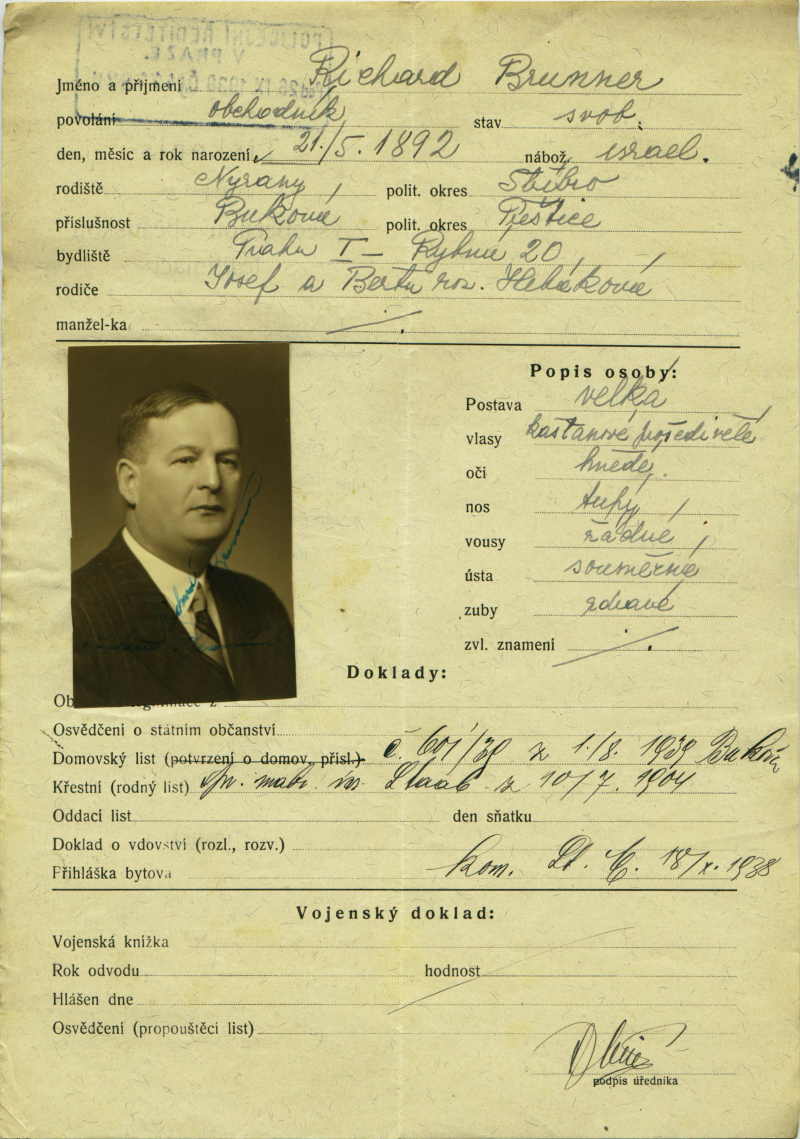 POLICEJNÍ ŘEDITELSTVÍ
V PRAZE.
Jméno a příjmení Richard Brunner
povolání obchodník stav svob.
den, měsíc a rok narození 21./5. 1892 nábož. israel.
rodiště Nýřany, polit. okres Stříbro
příslušnost Buková polit. okres Přeštice
bydliště Praha I – Rybná 20,
rodiče Josef a Berta roz.
manžel-ka
Popis osoby:
Postava velká
vlasy kaštanové prošedivělé
oči hnědé,
nos tupý,
vousy žádné,
ústa souměrná
zuby zdravé
zvl. znamení
Doklady:
Osvědčení o státním občanství
Domovský list (potvrzení o domov. přísl.) č. 601/39 z 1./8. 1939 Buková
Křestní (rodný list) isr. matr. Staab z 10/7. 1904
Oddací list den sňatku
Doklad o vdovství (rozl., rozv.)
Přihláška bytová kom. 18/X. 1938
Vojenský doklad:
Vojenská knížka
Rok odvodu hodnost
Hlášen dne
Osvědčení (propouštěcí list)
podpis úředníka